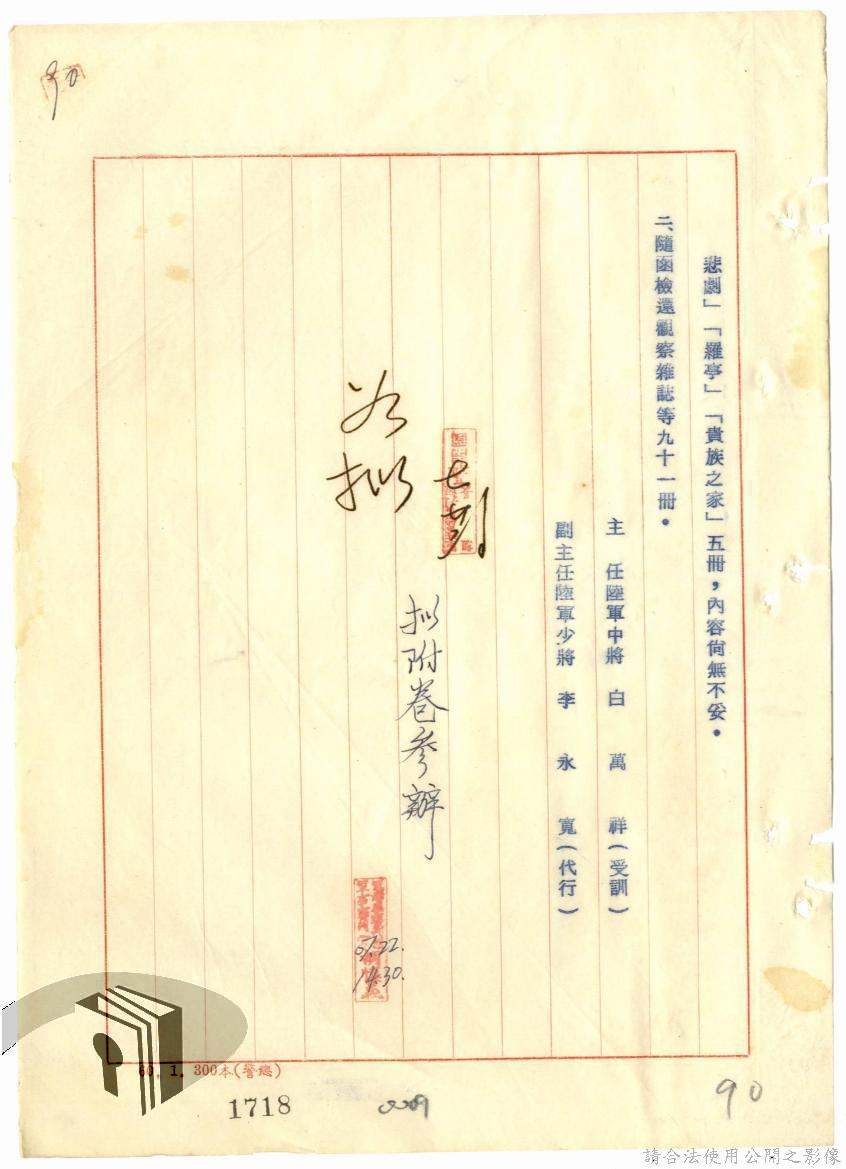 90
悲劇」「羅亭」「貴族之家」五冊，內容尙無不妥。
二、隨函檢還觀察雜誌等九十一冊。
主　任陸軍中將　白　萬　祥（受訓）
副主任陸軍少將　李　永　寬（代行）
擬附卷參辦
07.22.
14.30.
如擬
60. 1. 300本(警總)
1718
0009
90
請合法使用公開之影像